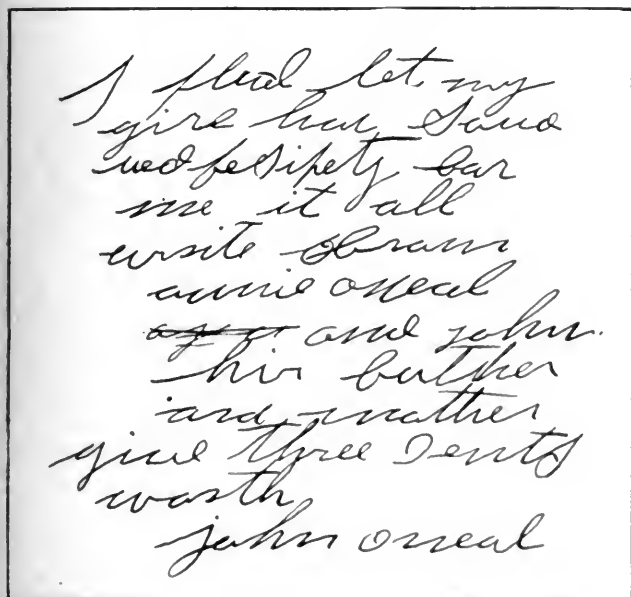 I plead let my
girl hav Soud
ued fesipety bar
me it all
wrsite obram
annie oneal
and john.
hir buther
and mother
give three Sents
worth
john oneal